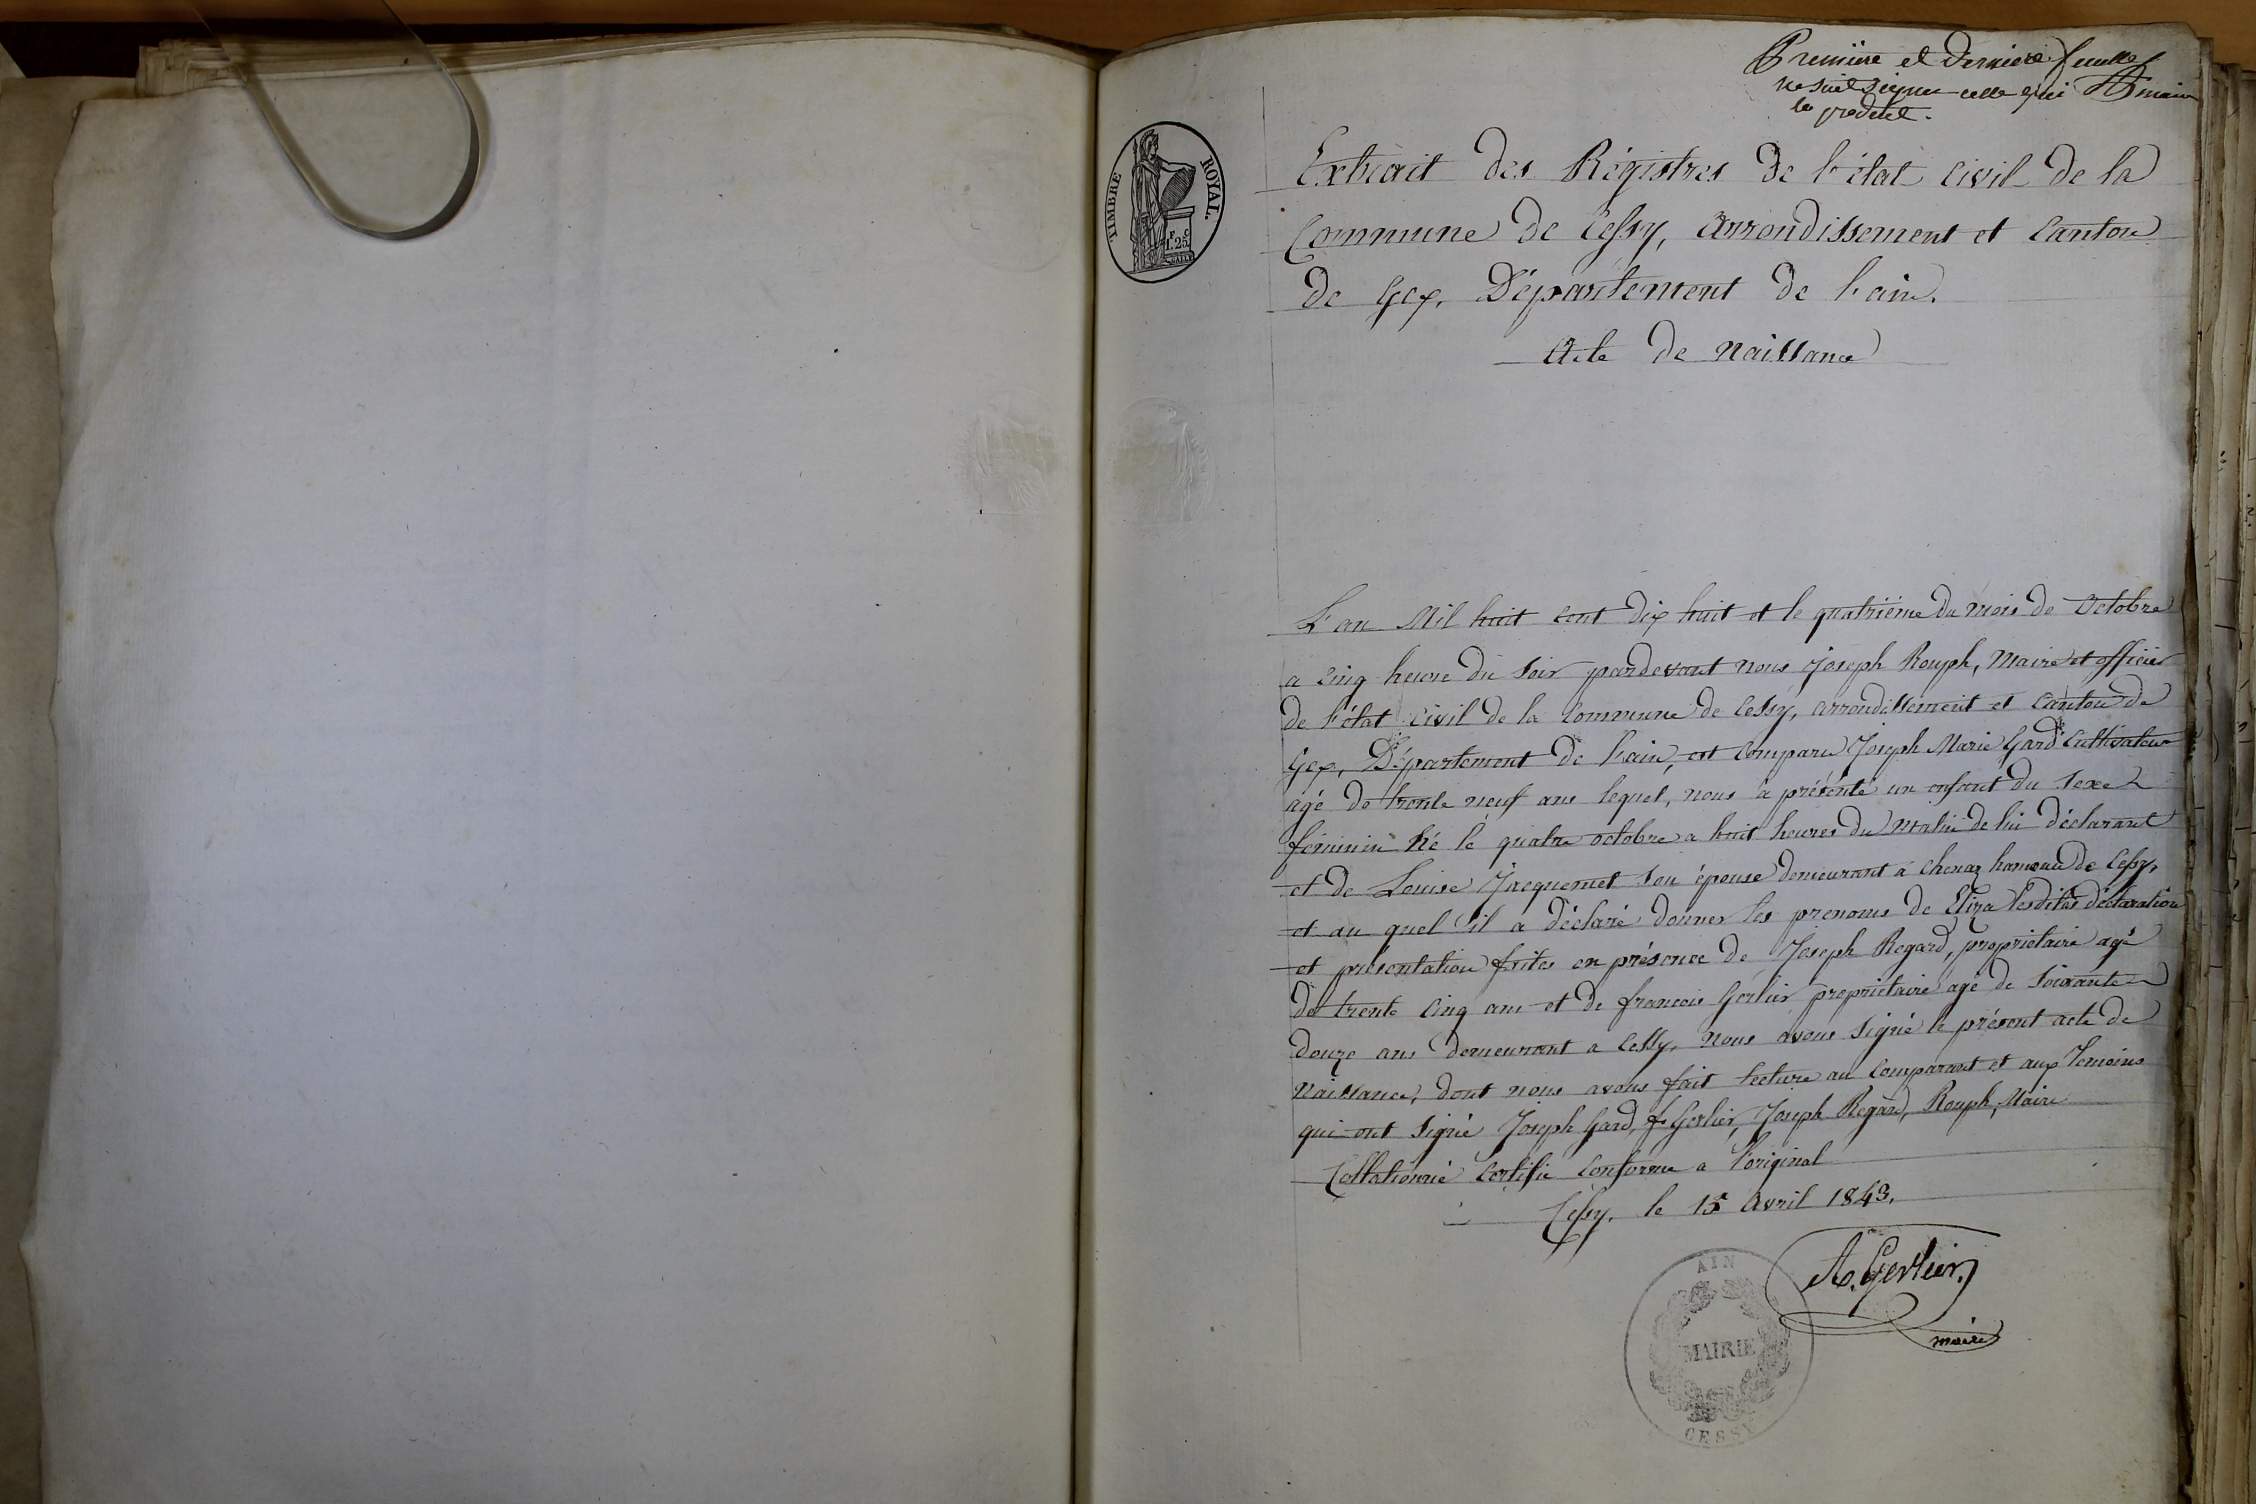 Première et Derniere feuille
ne sait signer celle qui
la produit.
TIMBRE ROYAL.
F. C.
1.25
Extrait des Régistres de l'état Civil de la
Commune de Cessy, Arrondissement et Canton
de Gex, Département de l'ain.
Acte de Naissance
L'an Mil huit Cent Dix huit et le quatrième du mois de Octobre
a Cinq heure du Soir pardevant Nous Joseph Rouph, Maire et officier
de l'état Civil de la Commune de Cessy, arrondissement et Canton de
Gex, Département de l'ain, est Comparu Joseph Marie Gard Cultivateur
agé de trente neuf ans lequel, nous a présenté un enfant du Sexe
feminin Né le quatre octobre a huit heures du Matin de lui Déclarant
et de Louise Jacquemet Son épouse demeurant a Chenaz hameau de Cessy,
et au quel il a déclaré donner les prenoms de Eliza lesdites déclaration
et présentation faites en présence de Joseph Regard, propriétaire agé
de trente Cinq ans et de francois Gerlier propriétaire agé de Soixante
douze ans Demeurant a Cessy. Nous avons Signé le présent acte de
Naissance, dont nous avons fait lecture au Comparant et aux Temoins
qui ont Signé Joseph Gard, f. Gerlier, Joseph Regard, Rouph, Maire
Collationné Certifié Conforme a l'original
Cessy, le 15 Avril 1843.
A. Gerlier
maire
AIN
MAIRIE
CESSY